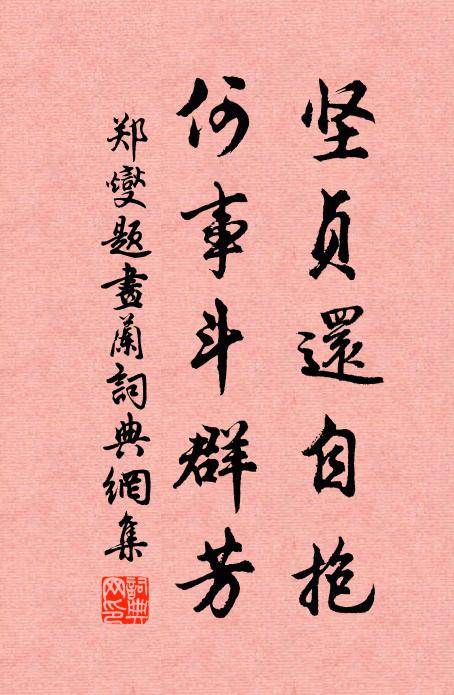 坚贞還自抱
何事斗群芳
郑燮题畫蘭詞典網集
詞典网印